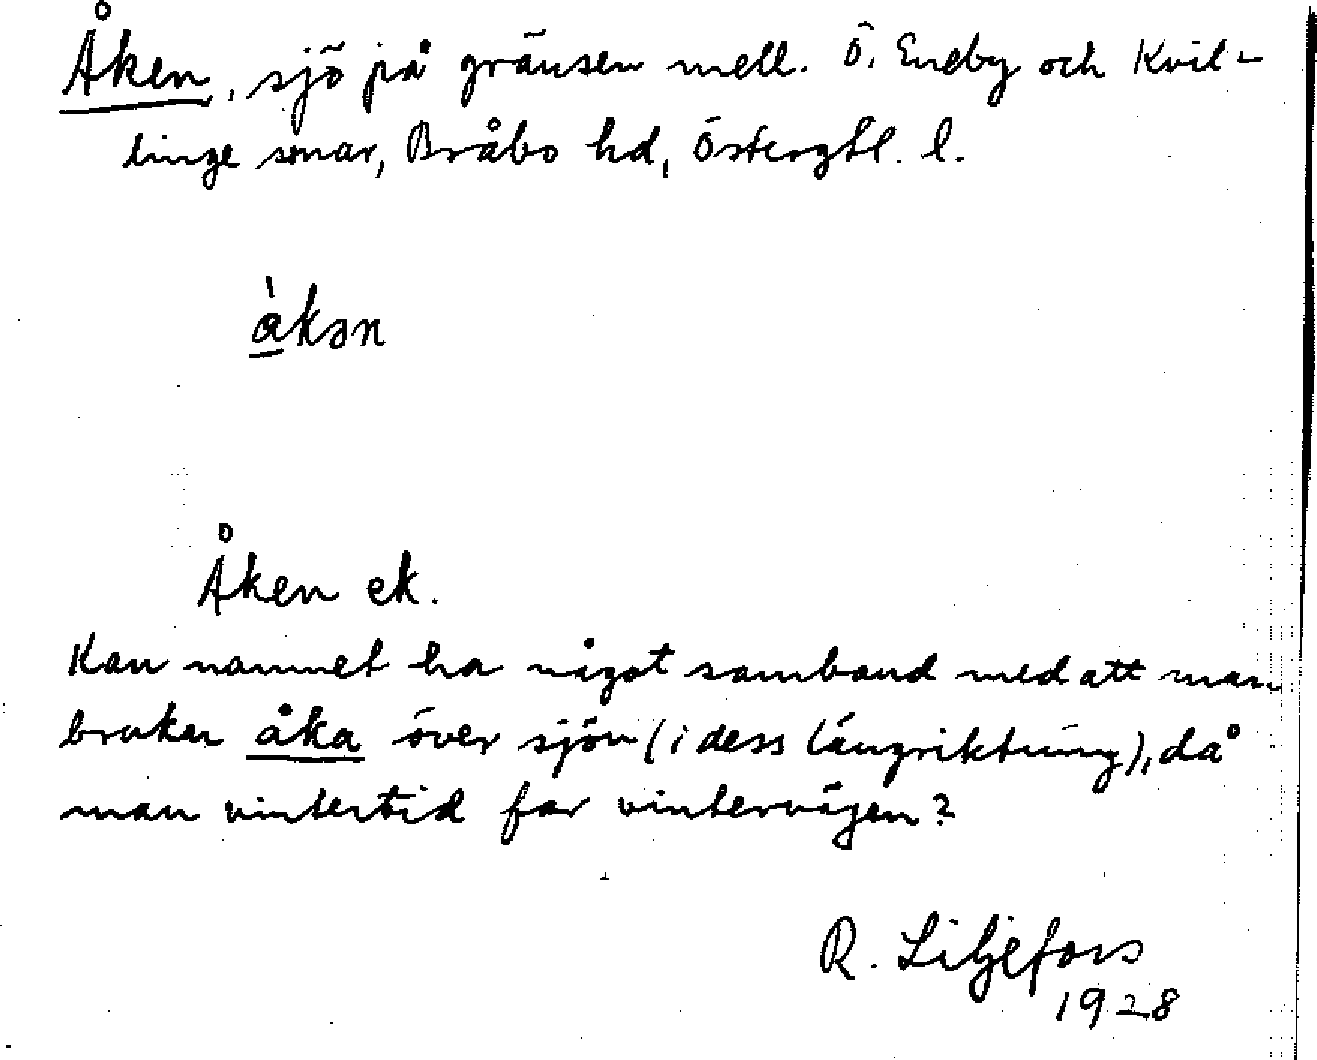 Åken, sjö på gränsen mell. Ö. Eneby och Kvil-
linge snar, Bråbo hd, Östergtl. l.
ὰkən
Åken ek.
Kan namnet ha något samband med att man
bruker åka över sjön (i dess längriktning), då
man vintertid far vintervägen?
R. Liljefors
1928